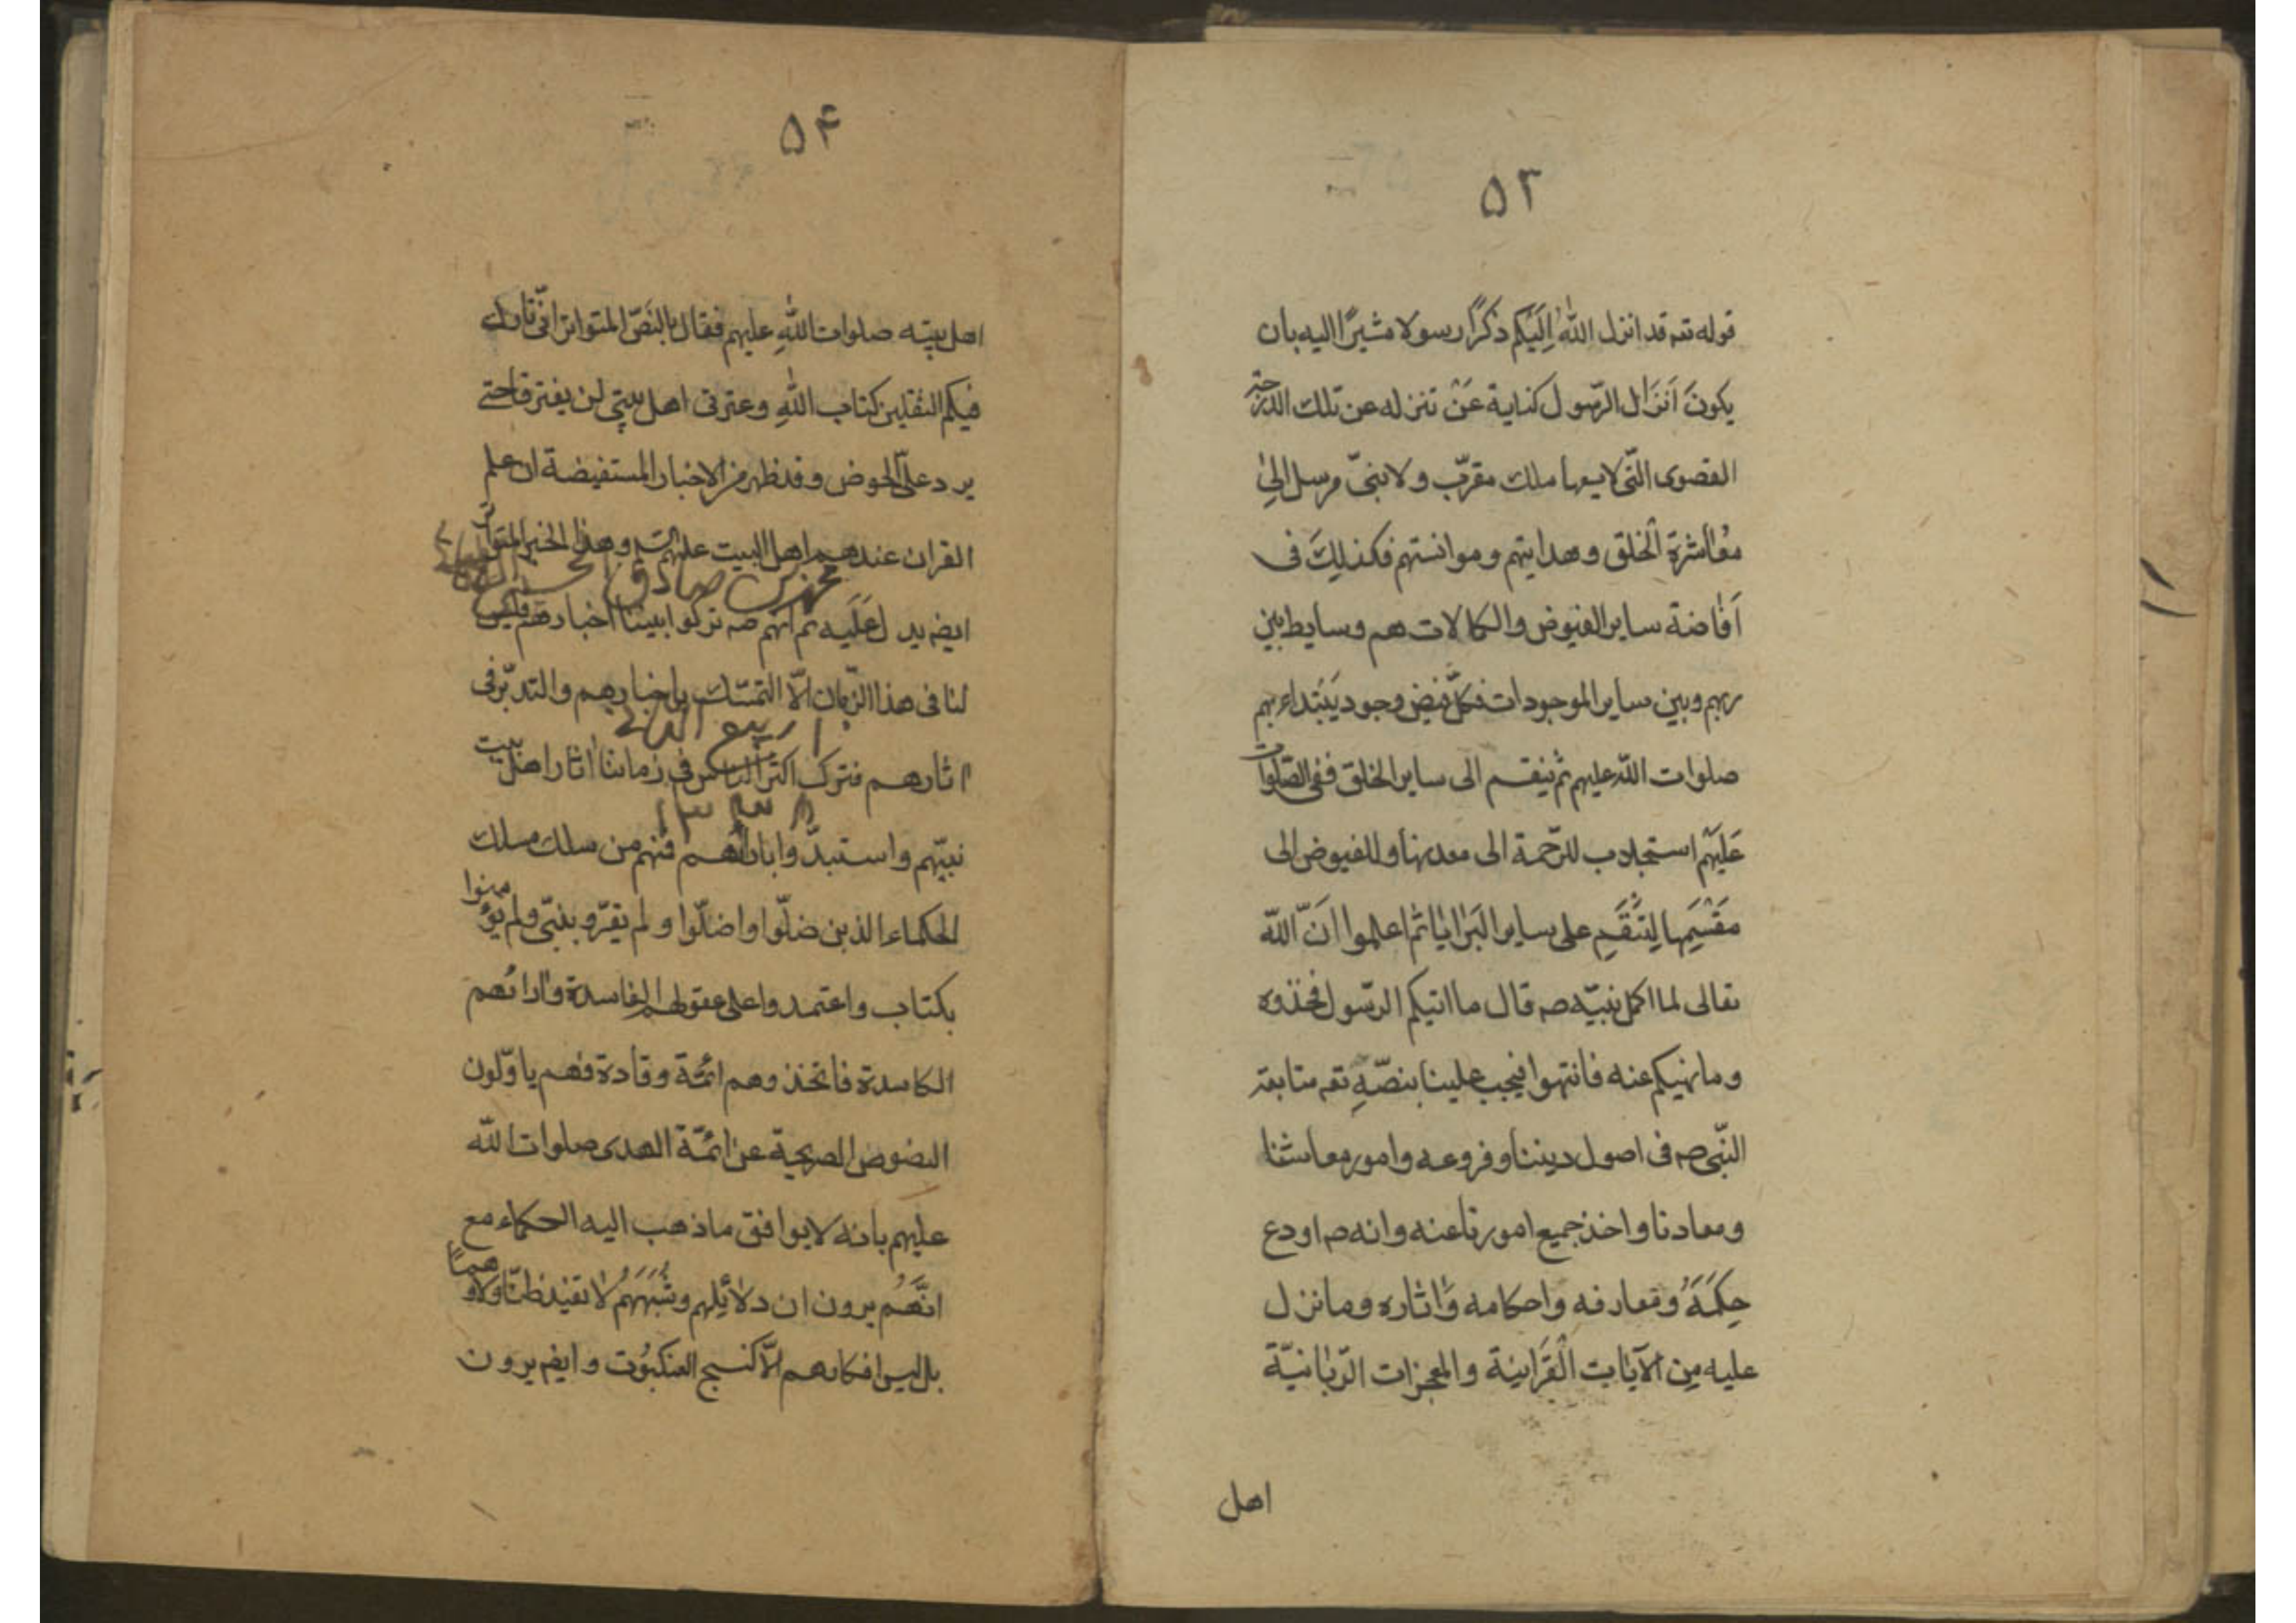 ۵۳
قوله تعه قد انزل اللهُ اِلَيْكم ذكرًا رسولا مشيرًا اليه بان
يكونَ اَنزَال الرّسول كناية عَنْ تنزله عن تلك الدّرجة
القصوى التّى لا يسعها ملك مقرّب ولا نبىّ مرسل الىٰ
معٰاشرة الخلق وهدايتهم وموانستهم فكذلِكَ فى
اَفٰاضة ساير الفيوض والكمالات هم وسايط بين
ربهم وبين ساير الموجودات فكلّ فيض وجود يَبْتداء بهم
صلوات الله عليهم ثم ينقسم الى ساير الخلق ففى الصّلوات
عَلَيْهم استجلاب للرّحمة الى معدنها وللفيوض الى
مَقْسَمِها لِتَنْقَسِم على ساير البَرٰايٰا ثم اعلموا اَنّ اللّه
تعالى لما اكمل نبيّه صه قال ما اتيكم الرّسول فخذوه
وما نهيكم عنه فانتهوا فيجب علينا بنصّهِ تعه متابعة
النّبى صه فى اصول ديننا وفروعه وامور معاشنا
ومعادنا واخذ جميع امورنا عنه وانه صه اودع
حِكَمَهُ ومعارفه واحكامه وَاٰثاره وما نزل
عليه مِن الآيٰات القُرانية والمعجزات الرّبٰانيّة
اهل
۵۴
اهل بيته صلوات اللهِ عليهم فقال بالنَصّ المتواتر انّى تارك
فيكم الثقلين كتاب اللهِ وعترتى اهل بيتى لن يفترقا حتى
يردا علىّ الحوض وقد ظهر من الاخبار المستفيضة ان علم
القران عندهم اهل البيت عليهم السّلم وهذا الخبر المتواتر
محمد صادق
ايضه يدل عَلَيه ثم انهم صه تركوا بيننا اخبارهم فليس
لنا فى هذا الزّمان الّا التمسّك باخبارهم والتدبّر فى
ربيع
اثارهم فترك اكثر الناس فى زماننا اثار اهل بيت
نبيّهم واستبدّوا باراٰئهم فمنهم من سلك مسلك
الحكماء الذين ضلّوا واضلّوا ولم يقرّو بنبّى ولم يؤمنوا
بكتاب واعتمدوا على عقولهم الفاسدة واٰرائهم
الكاسدة فاتخذوهم ائمّة وقادة فهم ياوّلون
النصوص الصريحة عن ائمّة الهدى صلوات اللّه
عليهم بانه لا يوافق ما ذهب اليه الحكماء مع
انَّهُم يرون ان دلائلهم وشُبَهَهُم لا تفيد ظنّا ولا وهمًا
بل ليس افكارهم الّا كنسج العنكبُوت وايضه يرون